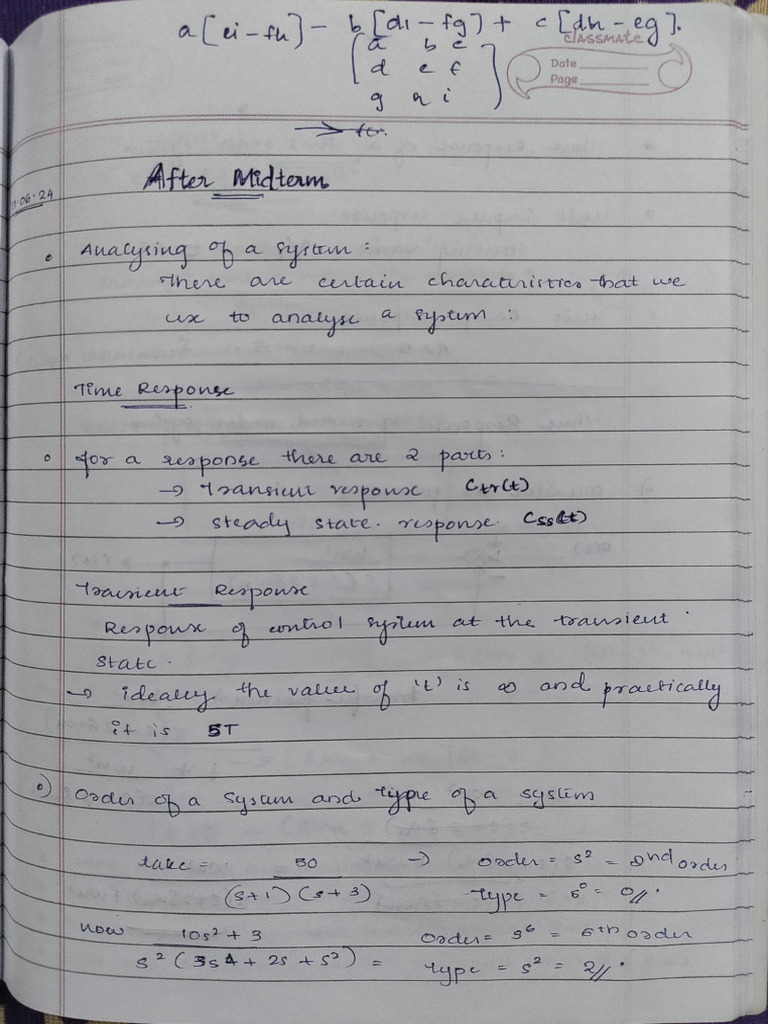 a[ei - fh] - b[di - fg] + c[dh - eg].
classmate
a b c
d e f
g h i
Date
Page
After Midterm
06.24
Analysing of a system:
There are certain charateristics that we
use to analyse a system:
Time Response
for a response there are 2 parts:
→ Transient response Ctr(t)
→ steady state. response. Css(t)
Transient Response
Response of control system at the transient
state.
→ ideally the value of 't' is ∞ and practically
it is 5T
Order of a system and type of a system
take = 50 → order = s² = 2nd order
(s+1)(s+3) type = s⁰ = 0//.
now 10s² + 3 order = s⁶ = 6th order
s²(3s4 + 2s + s²) = type = s² = 2//.